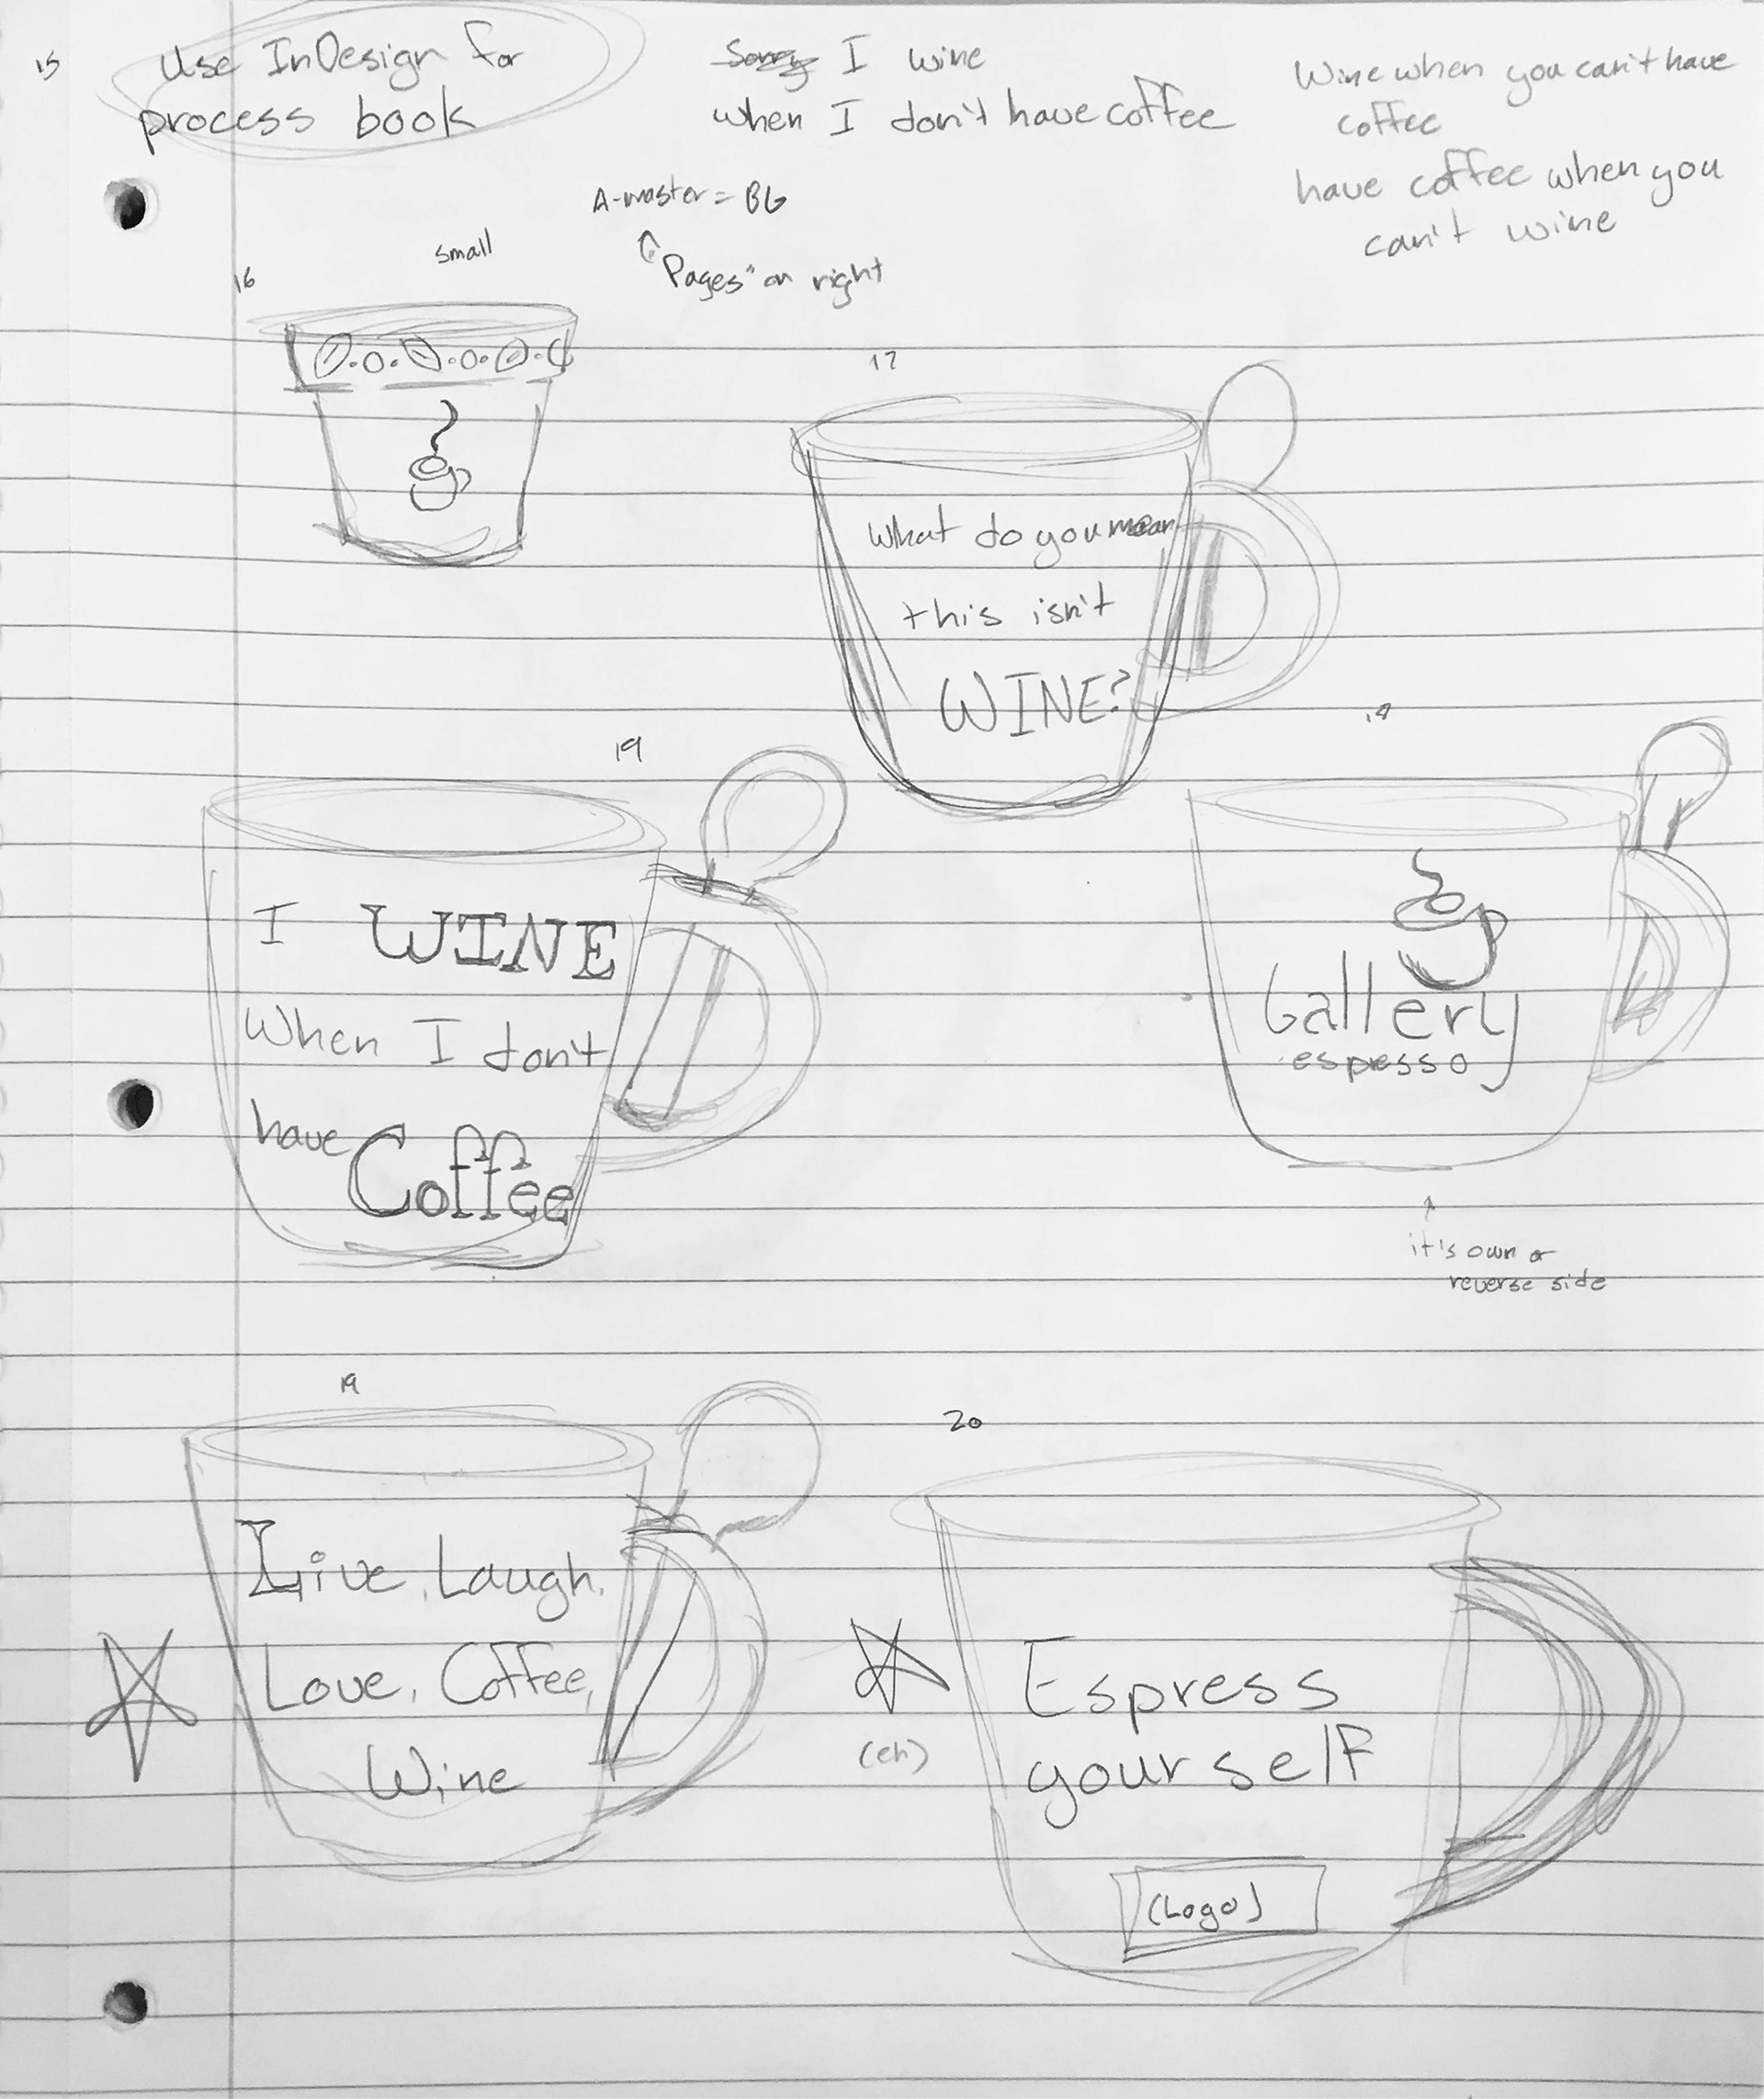 15
Use InDesign for
process book
Sorry I wine
when I don't have coffee
Wine when you can't have
coffee
have coffee when you
can't wine
A-master = BG
"Pages" on right
16
small
17
What do you mean
this isn't
WINE?
19
I WINE
When I don't
have Coffee
Gallery
espresso
it's own or
reverse side
19
Live, Laugh,
Love, Coffee,
Wine
20
(eh)
Espress
yourself
(Logo)